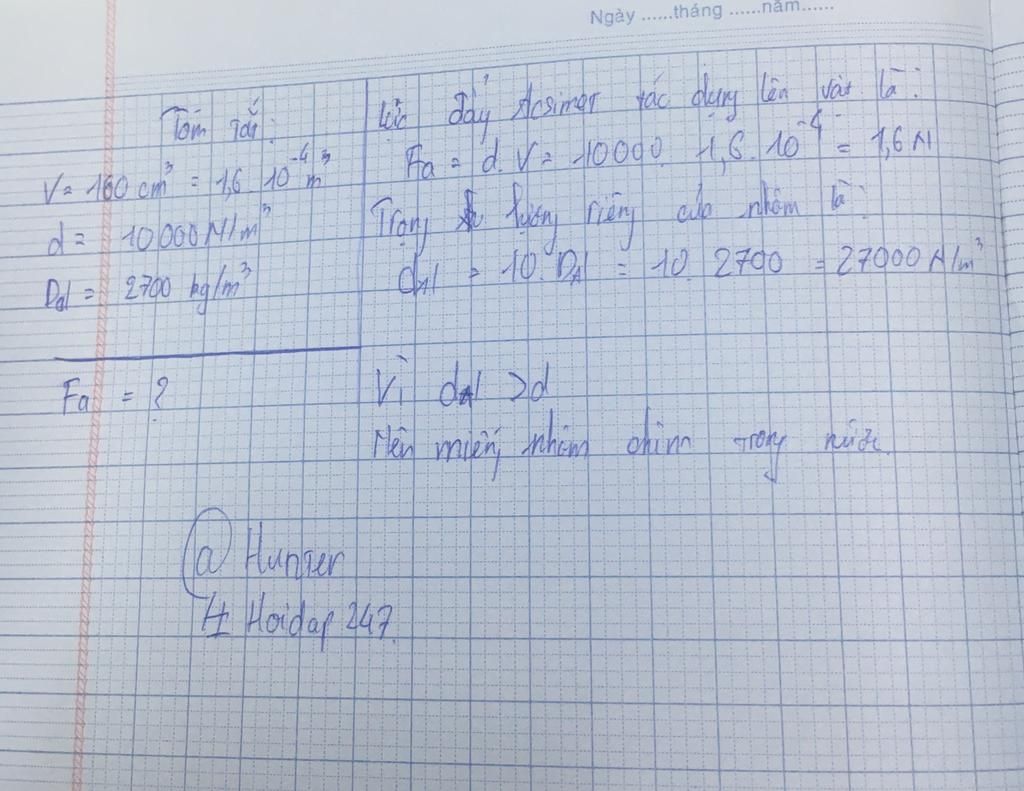 Ngày ......tháng ......năm......
Tóm tắt:
V = 160 cm³ = 1,6 10⁻⁴ m³
d = 10000 N/m³
Dnl = 2700 kg/m³
Fa = ?
Lực đẩy Acsimet tác dụng lên vật là:
Fa = d. V = 10000. 1,6. 10⁻⁴ = 1,6 N
Trọng lượng riêng của nhôm là:
dnl = 10. Dnl = 10. 2700 = 27000 N/m³
Vì dnl > d
Nên miếng nhôm chìm trong nước.
@ Hunter
# Hoidap 247.